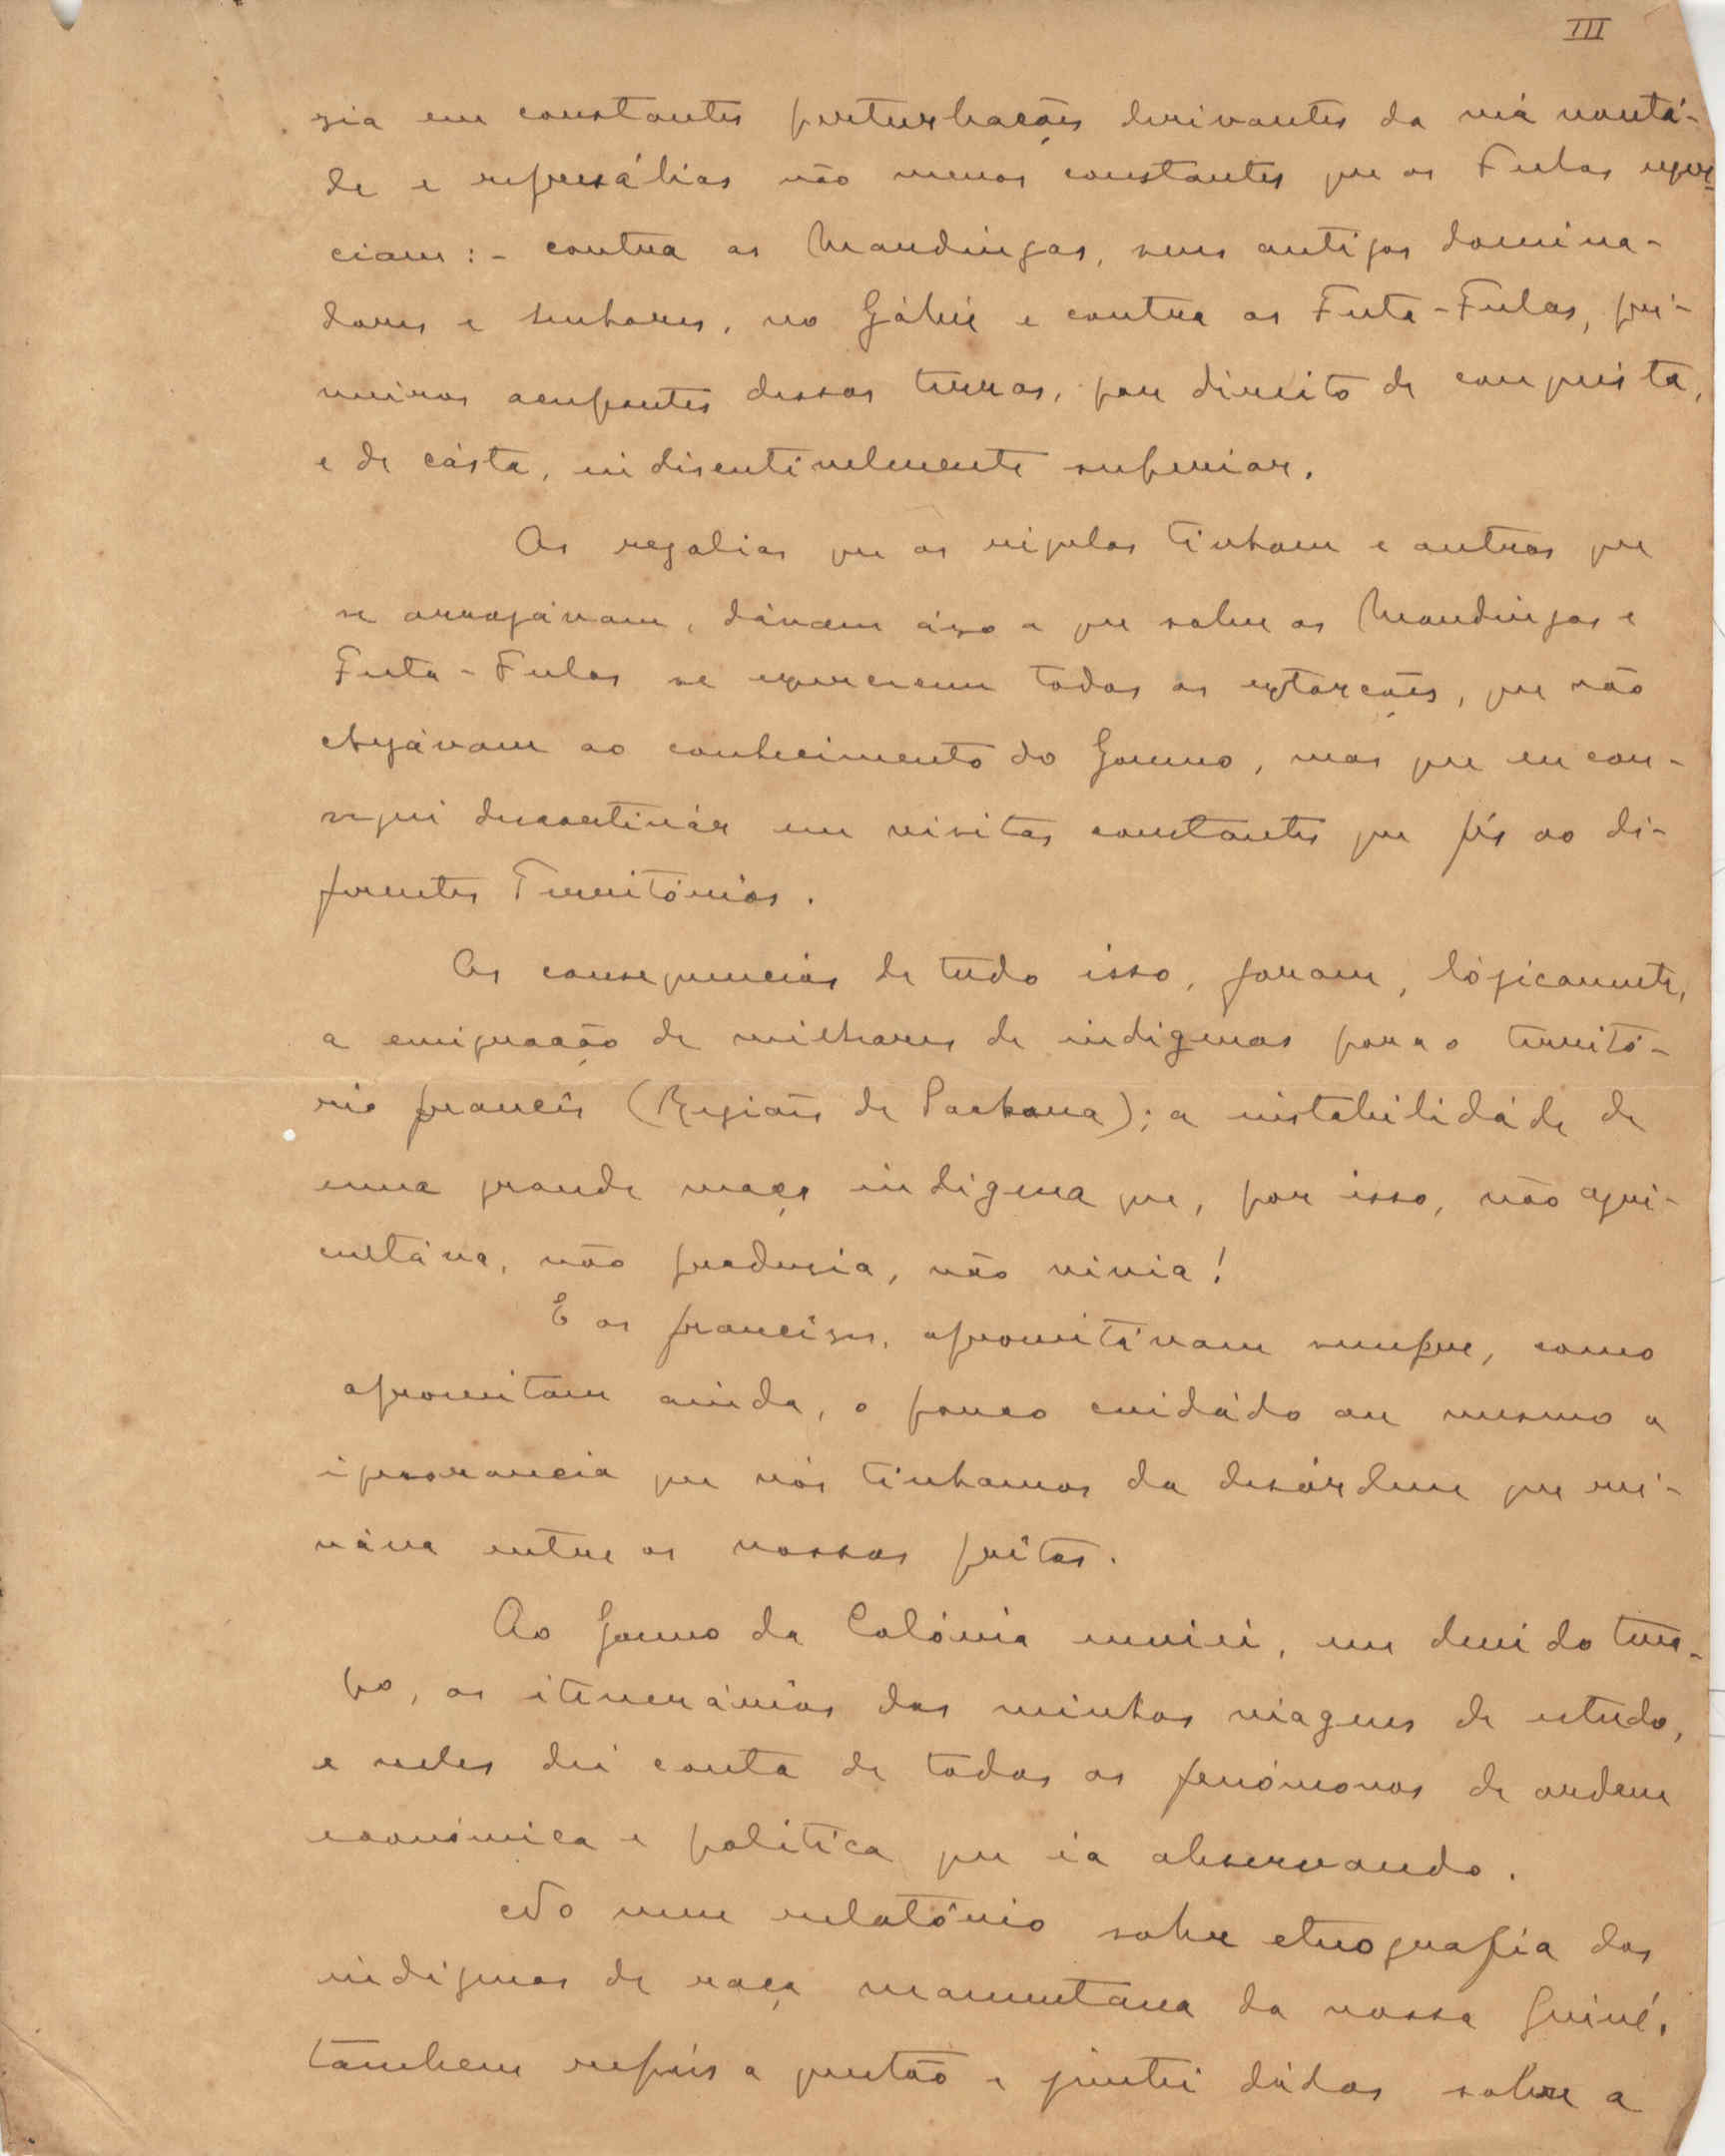 III
zia em constantes perturbações derivantes da má vontá-
de e represálias não menos constantes que os Fulas exer-
ciam: - contra os Mandingas, seus antigos domina-
dores e senhores, no Gábú e contra os Futa-Fulas, pri-
meiros ocupantes dessas terras, por direito de conquista,
e de cásta, indiscutivelmente superior.
As regalias que os régulos tinham e outras que
se arrogávam, dávam ázo a que sobre os Mandingas e
Futa-Fulas se exercecem todas as extorcões, que não
chegávam ao conhecimento do Governo, mas que eu con-
segui descortinár em visitas constantes que fiz ao di-
ferentes Territórios.
As consequencias de tudo isso, foram, lógicamente,
a emigração de milhares de indigenas para o territó-
rio francês (Regiões de Packana); a instabilidáde de
uma grande maça indigena que, por isso, não agri-
cultáva, não produsia, não vivia!
E os francêses, aproveitávam sempre, como
aproveitam ainda, o pouco cuidádo ou mesmo a
ignorancia que nós tinhamos da desórdem que rei-
náva entre os nossos gentios.
Ao Governo da Colónia enviei, em devido tem-
po, os itenerários das minhas viagens de estudo,
e neles dei conta de todos os fenómonos de ordem
económica e politica que ia observando.
No meu relatório sobre etnografia dos
indigenas de raça maometana da nossa Guiné,
tambem refiro a questão e juntei dádos sobre a